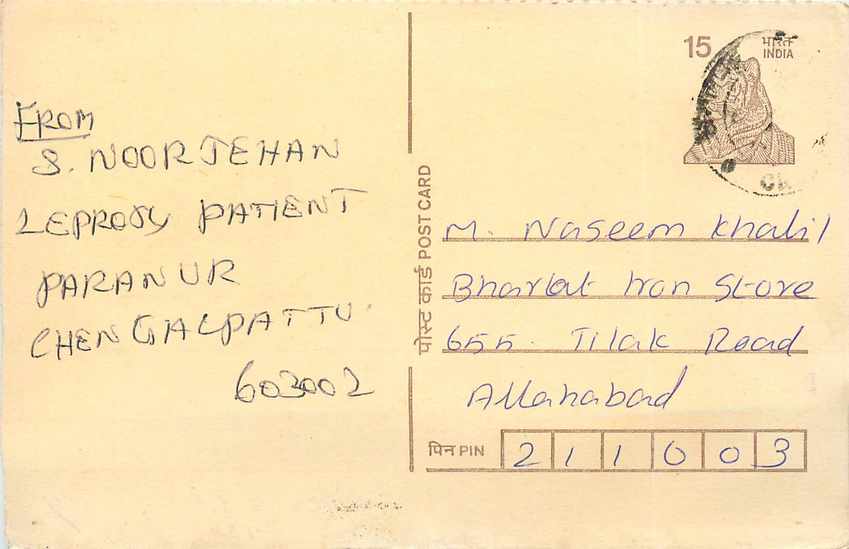 FROM
S. NOORJEHAN
LEPROSY PATIENT
PARANUR
CHENGALPATTU
603002
पोस्ट कार्ड POST CARD
15
भारत
INDIA
M. Naseem Khalil
Bharat Iron Store
655. Tilak Road
Allahabad
पिन PIN 211003